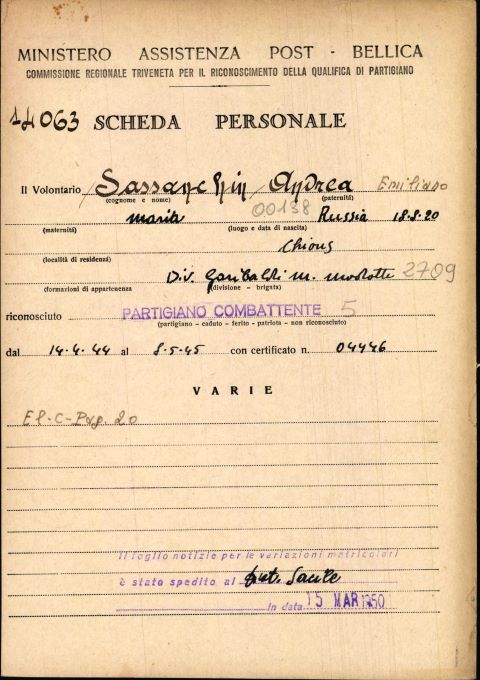 MINISTERO ASSISTENZA POST - BELLICA
COMMISSIONE REGIONALE TRIVENETA PER IL RICONOSCIMENTO DELLA QUALIFICA DI PARTIGIANO
11063 SCHEDA PERSONALE
Il Volontario Sassanchin Andrea Emiliano
(cognome e nome) (paternità)
Maria 00138 Russia 18.8.20
(maternità) (luogo e data di nascita)
Chions
(località di residenza)
Div. Garibaldi M. Modotti 2709
(formazioni di appartenenza (divisione - brigata)
riconosciuto PARTIGIANO COMBATTENTE 5
(partigiano - caduto - ferito - patriota - non riconosciuto)
dal 14.4.44 al 8-5-45 con certificato n. 04446
VARIE
El-C-Pag. 20
Il foglio notizie per le variazioni matricolari
è stato spedito al Dist. Sacile
In data 15 MAR 1950